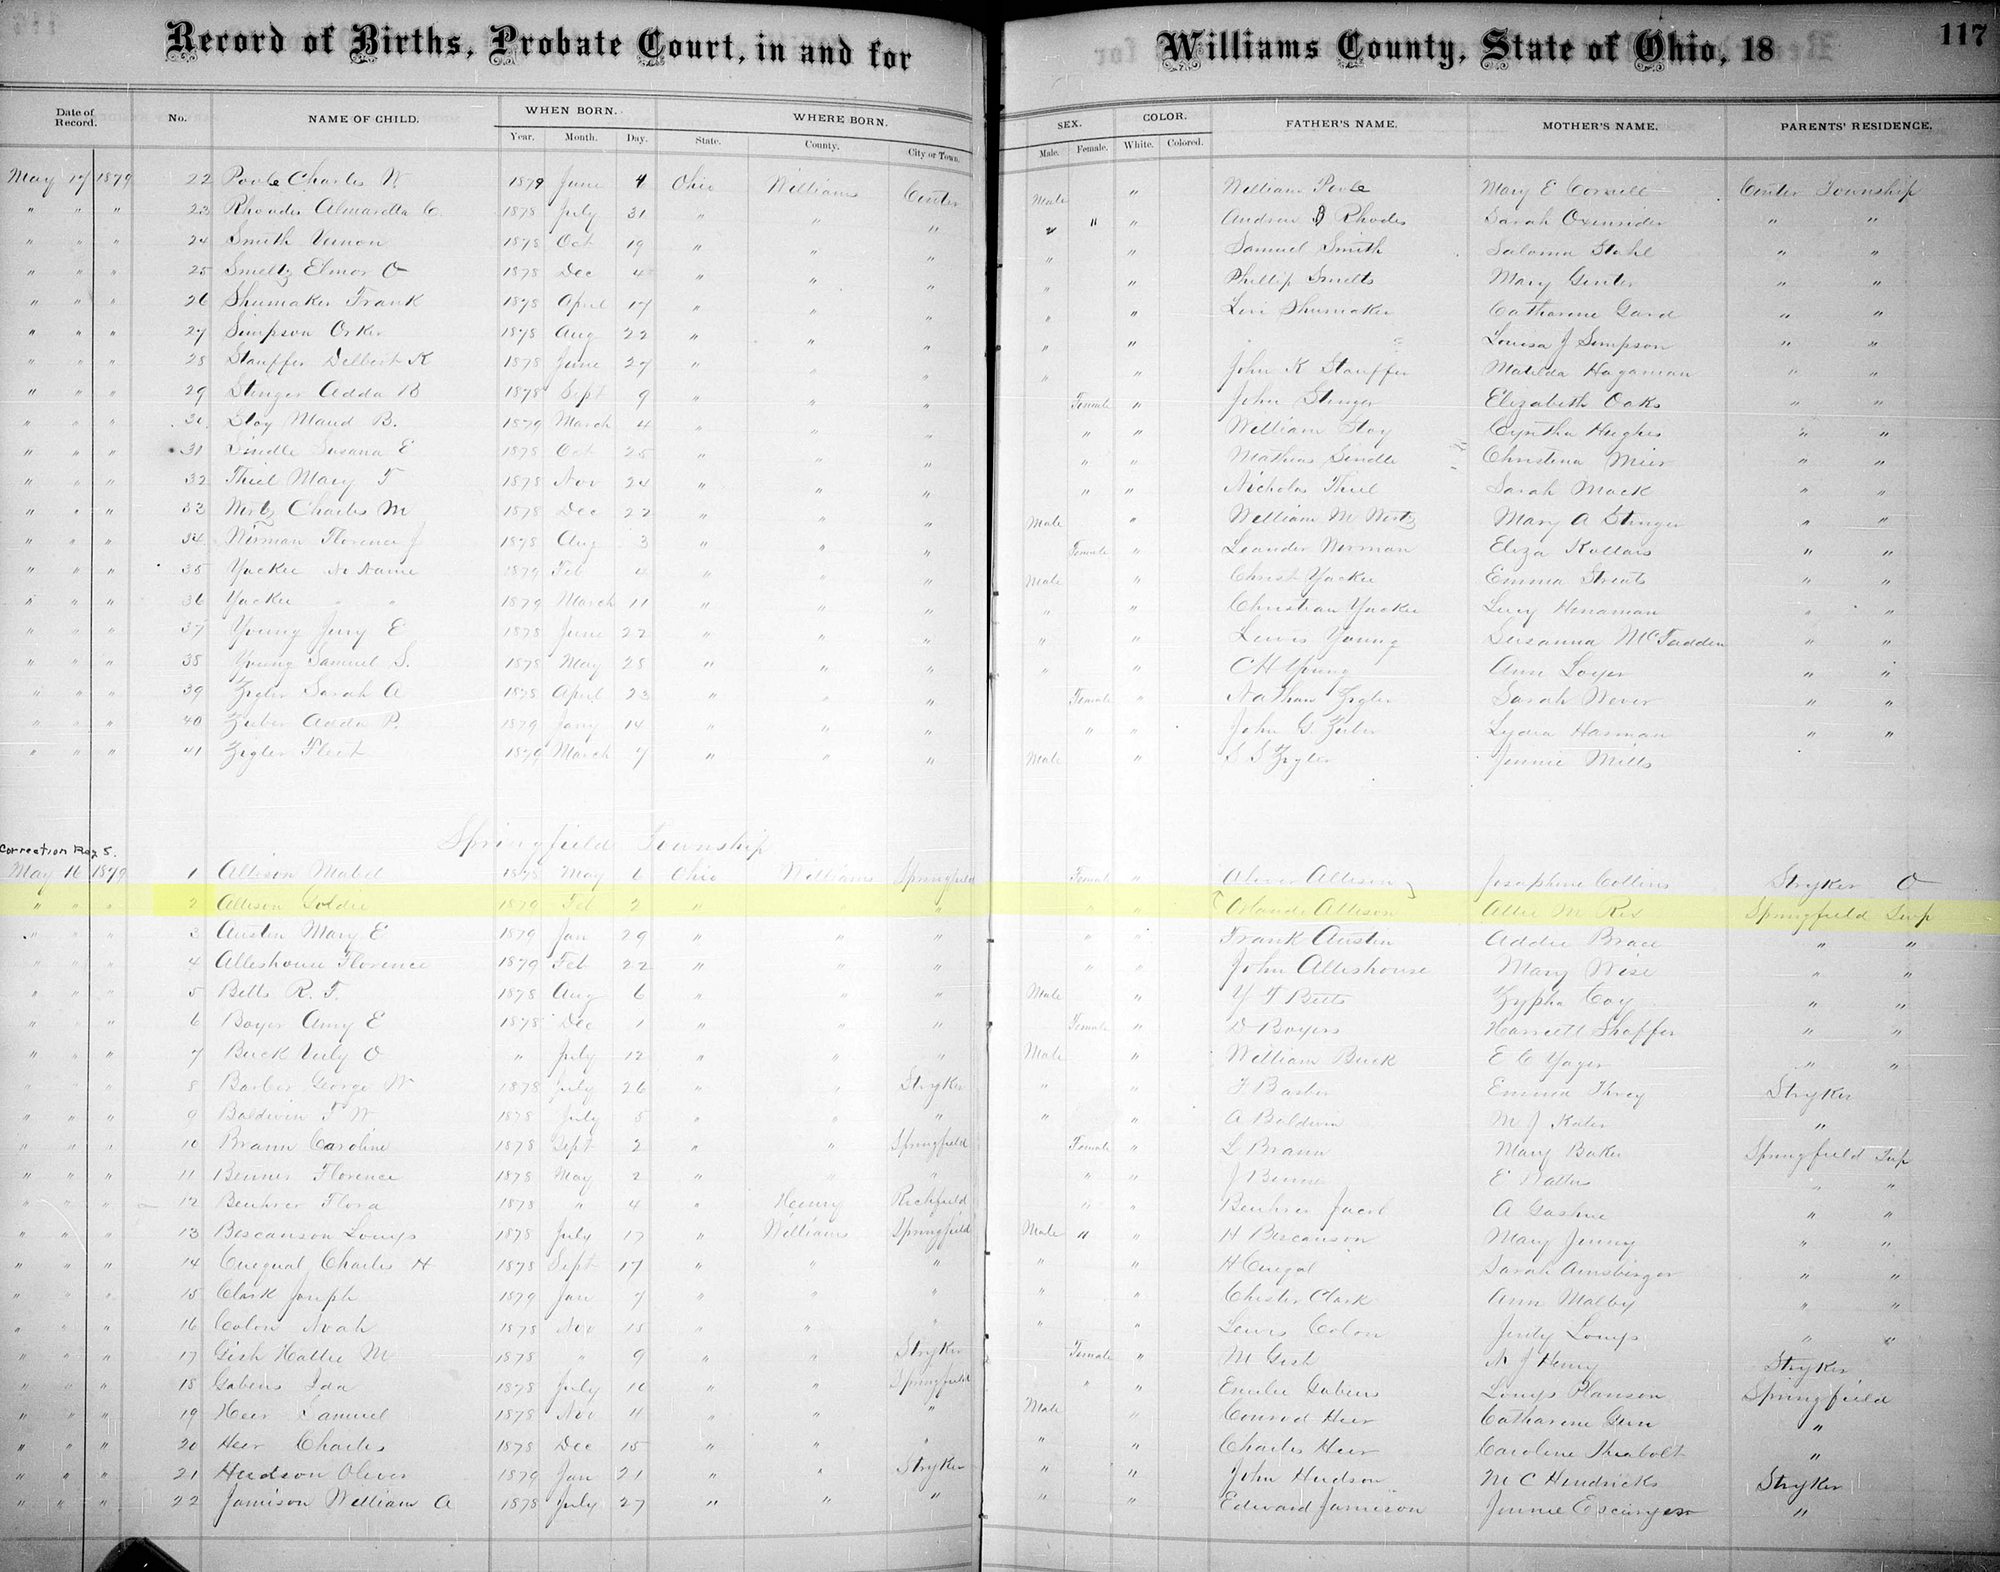 Record of Births, Probate Court, in and for Williams County, State of Ohio, 18 117
Date of Record. No. NAME OF CHILD. WHEN BORN. WHERE BORN. SEX. COLOR. FATHER'S NAME. MOTHER'S NAME. PARENTS' RESIDENCE.
Year. Month. Day. State. County. City or Town. Male. Female. White. Colored.
May 17 1879 22 Poole Charles W. 1879 June 4 Ohio Williams Center Male " William Poole Mary E Cornell Center Township
" " " 23 Rhoades Almaretta C. 1878 July 31 " " " " " " Andrew Rhodes Sarah Oxenrider " "
" " " 24 Smith Vernon 1878 Oct 19 " " " " " Samuel Smith Saloma Stahl " "
" " " 25 Smeltz Elmer O 1878 Dec 4 " " " " " Phillip Smelts Mary Ginter " "
" " " 26 Shumaker Frank 1878 April 17 " " " " " Levi Shumaker Catharine Gard " "
" " " 27 Simpson Orker 1878 Aug 22 " " " " " Louisa J Simpson " "
" " " 28 Stauffer Delbert K 1878 June 27 " " " " " John K Stauffer Matilda Hagaman " "
" " " 29 Stinger Adda B 1878 Sept 9 " " " Female " John Stinger Elizabeth Oaks " "
" " " 30 Stoy Maud B. 1879 March 4 " " " " " William Stoy Cyntha Hughes " "
" " " 31 Sindle Susana E 1878 Oct 25 " " " " " Mathias Sindle Christena Mier " "
" " " 32 Thiel Mary F 1878 Nov 24 " " " " " Nicholas Thiel Sarah Mack " "
" " " 33 Wertz Charles M 1878 Dec 22 " " " Male " William M Wertz Mary A Stinger " "
" " " 34 Wirman Florence J 1878 Aug 3 " " " Female " Leander Wirman Eliza Kollars " "
" " " 35 Yackee No Name 1879 Feb 4 " " " Male " Christ Yackee Emma Streits " "
" " " 36 Yackee " " 1879 March 11 " " " " " Christian Yackee Lucy Hinaman " "
" " " 37 Young Jury E 1878 June 22 " " " " " Lewis Young Susanna McFadden " "
" " " 38 Young Samuel S. 1878 May 28 " " " " " C H Young Ann Loyer " "
" " " 39 Zigler Sarah A 1878 April 23 " " " Female " Nathan Zigler Sarah Wever " "
" " " 40 Zuber Adda P. 1879 Jany 14 " " " " " John G. Zuber Lydia Harman " "
" " " 41 Zigler Fleet 1879 March 7 " " " Male " S S Zigler Jennie Mills
Springfield Township
Correction Pag 5.
May 16 1879 1 Allison Mabel 1878 May 6 Ohio Williams Springfield Female " Oliver Allison Josephine Collins Stryker O
" " " 2 Allison Goldie 1879 Feb 2 " " " " " Orlando Allison Allie M Rex Springfield Twp
" " " 3 Austin Mary E 1879 Jan 29 " " " " " Frank Austin Addie Brace " "
" " " 4 Alleshouse Florence 1879 Feb 22 " " " " " John Alleshouse Mary Wise " "
" " " 5 Betts R. F. 1878 Aug 6 " " " Male " Y F Betts Zypha Coy " "
" " " 6 Boyer Amy E 1878 Dec 1 " " " Female " D Boyers Harriett Shaffer " "
" " " 7 Buck July O " July 12 " " " Male " William Buck E C Yager " "
" " " 8 Barber George W 1878 July 26 " " Stryker " " F Barber Emma Threy Stryker
" " " 9 Baldwin F W 1878 July 5 " " " " " A Baldwin M J Kater "
" " " 10 Braun Caroline 1878 Sept 2 " " Springfield Female " L Braun Mary Baker Springfield Twp
" " " 11 Benner Florence 1878 May 2 " " " " " J Benner E Walters " "
" " " 12 Beuhrer Flora 1878 " 4 " Henry Richfield " " Beuhrer Jacob A Gashne " "
" " " 13 Bescanson Louys 1878 July 17 " Williams Springfield Male " " H Bescanson Mary Jenny " "
" " " 14 Cuequal Charles H 1878 Sept 17 " " " " " H Cuegal Sarah Amsberger " "
" " " 15 Clark Joseph 1879 Jan 7 " " " " " Chester Clark Ann Malby " "
" " " 16 Colon Noah 1878 Nov 18 " " " " " Lewis Colon Judy Louys " "
" " " 17 Gish Hattie M 1878 " 9 " " Stryker Female " M Gish N J Henry Stryker
" " " 18 Gabeus Ida 1878 July 10 " " Springfield " " Emelie Gabeus Louys Planson Springfield
" " " 19 Heer Samuel 1878 Nov 4 " " " Male " Conrod Heer Catharine Gun "
" " " 20 Heer Charles 1878 Dec 15 " " " " " Charles Heer Caroline Theabolt "
" " " 21 Hudson Oliver 1879 Jan 21 " " Stryker " " John Hudson M C Hendricks Stryker
" " " 22 Jamison William A 1878 July 27 " " " " " Edward Jamison Jennie "